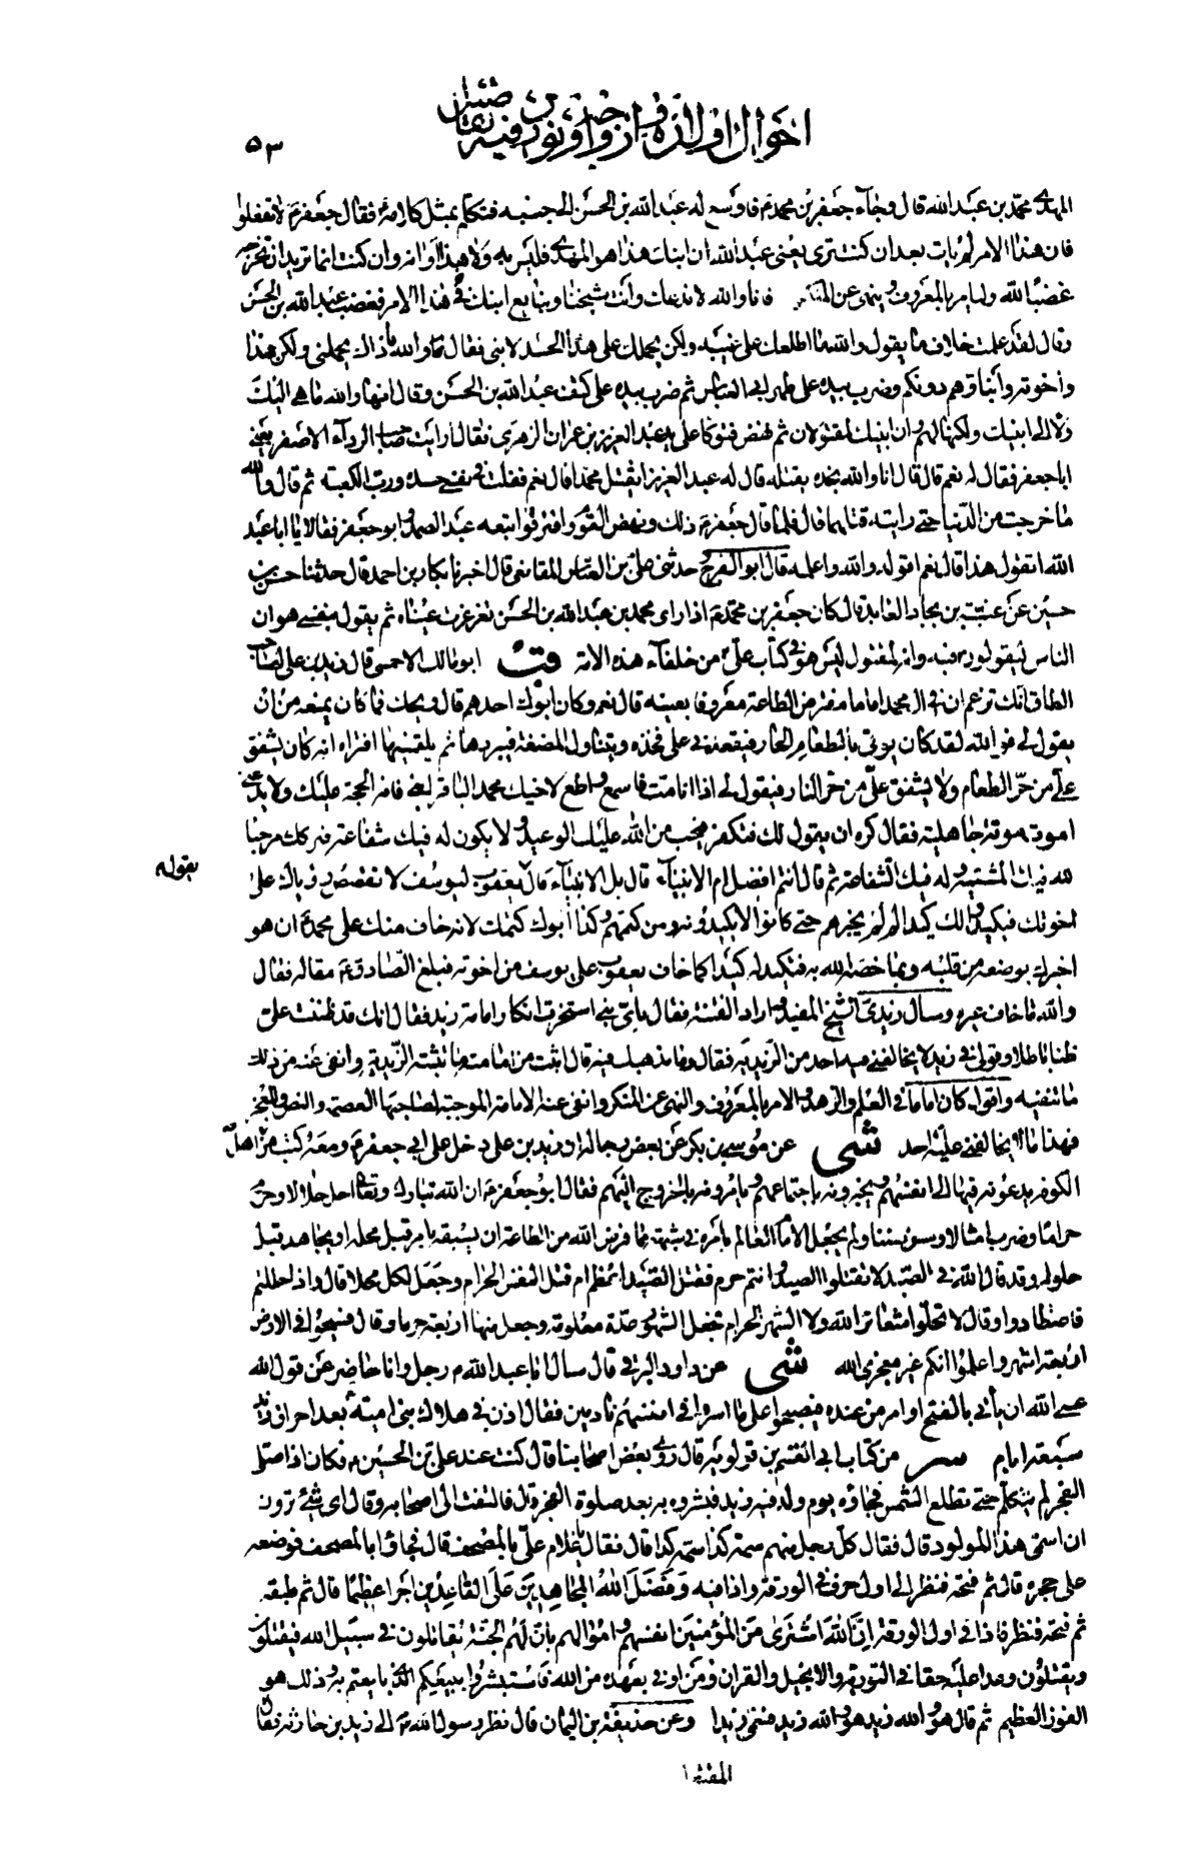 احوال اولاده وازواجه وفيه نقائض
٥٣
المهدى محمد بن عبد الله قال وجاء جعفر بن محمد ع فاوسع له عبد الله بن الحسن الى جنبه فتكلم بمثل كلامه فقال جعفر ع لا تفعلوا
فان هذا الامر لم يات بعد ان كنت ترى يعنى عبد الله ان ابنك هذا هو المهدى فليس به ولا هذا اوانه وان كنت انما تريد ان تخرجه
غضبا لله وليامر بالمعروف وينهى عن المنكر فانا والله لا ندعك وانت شيخنا ونبايع ابنك فى هذا الامر فغضب عبد الله بن الحسن
وقال لقد علمت خلاف ما يقول ووالله ما اطلعك على غيبه ولكن يحملك على هذا الحسد لابنى فقال ما والله ما ذاك يحملنى ولكن هذا
واخوته وابناؤهم دونكم وضرب بيده على ظهر ابى العباس ثم ضرب بيده على كتف عبد الله بن الحسن وقال انها والله ما هى اليك
ولا الى ابنيك ولكنها لهم وان ابنيك لمقتولان ثم نهض فتوكا على يد عبد العزيز بن عمران الزهرى فقال ارايت صاحب الرداء الاصفر يعنى
ابا جعفر فقال له نعم قال قال انا والله نجده يقتله قال له عبد العزيز ايقتل محمدا قال نعم فقلت فى نفسى حسده ورب الكعبة ثم قال والله
ما خرجت من الدنيا حتى رايته قتلهما قال فلما قال جعفر ع ذلك ونهض القوم وافترقوا تبعه عبد الصمد وابو جعفر فقالا يا ابا عبد
الله اتقول هذا قال نعم اقوله والله واعلمه قال ابو الفرج حدثنى على بن العباس المقانعى قال اخبرنا بكار بن احمد قال حدثنا حسن بن
حسين عن عنبسة بن بجاد العابد قال كان جعفر بن محمد ع اذا راى محمد بن عبد الله بن الحسن تغرغرت عيناه ثم يقول بنفسى هو ان
الناس ليقولون فيه وانه لمقتول ليس هو فى كتاب على من خلفاء هذه الامة قب ابو مالك الاحمسى قال زيد بن على لصاحب
الطاق انك تزعم ان فى ال محمد اماما مفترض الطاعة معروفا بعينه قال نعم وكان ابوك احدهم قال ويحك فما كان يمنعه من ان
يقول لى فو الله لقد كان يؤتى بالطعام الحار فيقعدنى على فخذه ويتناول المضغة فيبردها ثم يلقمنيها افتراه انه كان يشفق
على من حر الطعام ولا يشفق على من حر النار فيقول لى اذا انا مت فاسمع واطع لاخيك محمد الباقر ابنى فانه الحجة عليك ولا يدعنى
اموت موتة جاهلية فقال كره ان يقول لك فتكفر فيجب من الله عليك الوعيد ولا يكون له فيك شفاعة فتركك مرجئا
لله فيك المشية وله فيك الشفاعة ثم قال انتم افضل ام الانبياء قال بل الانبياء قال يعقوب ليوسف لا تقصص رؤياك على
يقوله
اخوتك فيكيدوا لك كيدا لم لم يخبرهم حتى كانوا لا يكيدونه ومن كتمهم وكذا ابوك كتمك لانه خاف منك على محمد ع ان هو
اخبرك بوضعه من قلبه وبما خصه الله به فتكيد له كيدا كما خاف يعقوب على يوسف من اخوته فبلغ الصادق ع مقاله فقال
والله ما خاف غيره وسال زيدى الشيخ المفيد واراد الفتنة فقال باى شىء استخرت انكار امامة زيد فقال انك قد ظننت على
ظنا باطلا وقولى فى زيد لا يخالفنى فيه احد من الزيدية فقال وما مذهبك فيه قال اثبت من امامته ما تثبته الزيدية وانفى عنه من ذلك
ما تنفيه واقول كان اماما فى العلم والزهد والامر بالمعروف والنهى عن المنكر وانفى عنه الامامة الموجبة لصاحبها العصمة والنص والمعجز
فهذا ما لا يخالفنى عليه احد شى عن موسى بن بكر عن بعض رجاله ان زيد بن على دخل على ابى جعفر ع ومعه كتب من اهل
الكوفة يدعونه فيها الى انفسهم ويخبرونه باجتماعهم ويامرونه بالخروج اليهم فقال ابو جعفر ع ان الله تبارك وتعالى احل حلالا وحرم
حراما وضرب امثالا وسن سننا ولم يجعل الامام العالم بامره فى شبهة مما فرض الله من الطاعة ان يسبقه بامر قبل محله او يجاهد قبل
حلوله وقد قال الله فى الصيد لا تقتلوا الصيد وانتم حرم فقتل الصيد اعظم ام قتل النفس الحرام وجعل لكل محلا قال واذا حللتم
فاصطادوا وقال لا تحلوا شعائر الله ولا الشهر الحرام فجعل الشهور عدة معلومة وجعل منها اربعة حرما وقال فسيحوا فى الارض
اربعة اشهر واعلموا انكم غير معجزى الله شى عن داود البرقى قال سال ابا عبد الله ع رجل وانا حاضر عن قول الله
عسى الله ان ياتى بالفتح او امر من عنده فيصبحوا على ما اسروا فى انفسهم نادمين فقال اذن فى هلاك بنى امية بعد احراق زيد
سبعة ايام سر من كتاب ابى القسم بن قولويه قال روى بعض اصحابنا قال كنت عند على بن الحسين ع فكان اذا صلى
الفجر لم يتكلم حتى تطلع الشمس فجاؤه يوم ولد فيه زيد فبشروه به بعد صلوة الفجر قال فالتفت الى اصحابه وقال اى شىء ترون
ان اسمى هذا المولود قال فقال كل رجل منهم سمه كذا سمه كذا قال فقال يا غلام على بالمصحف قال فجاؤا بالمصحف فوضعه
على حجره قال ثم فتحه فنظر الى اول حرف فى الورقة واذا فيه وفضل الله المجاهدين على القاعدين اجرا عظيما قال ثم طبقه
ثم فتحه فنظر فاذا فى اول الورقة ان الله اشترى من المؤمنين انفسهم واموالهم بان لهم الجنة يقاتلون فى سبيل الله فيقتلون
ويقتلون وعدا عليه حقا فى التورية والانجيل والقران ومن اوفى بعهده من الله فاستبشروا ببيعكم الذى بايعتم به وذلك هو
الفوز العظيم ثم قال هو والله زيد هو والله زيد فسمى زيدا وعن حذيفة بن اليمان قال نظر رسول الله ص الى زيد بن حارثة فقال
المقتول